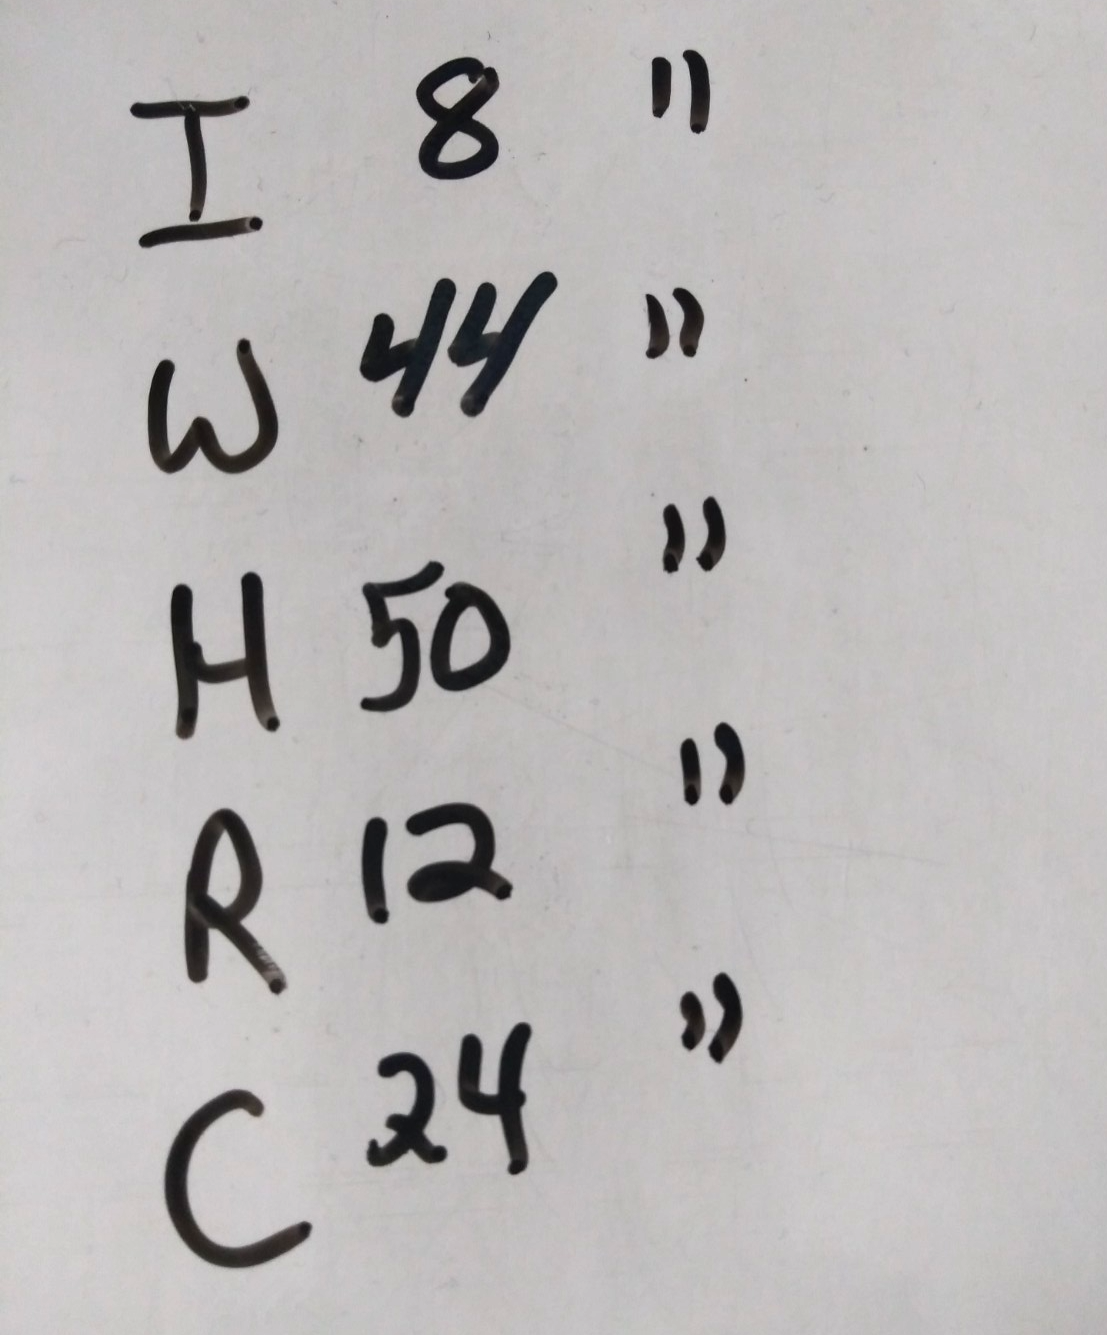 I 8 "
W 44 "
H 50 "
R 12 "
C 24 "